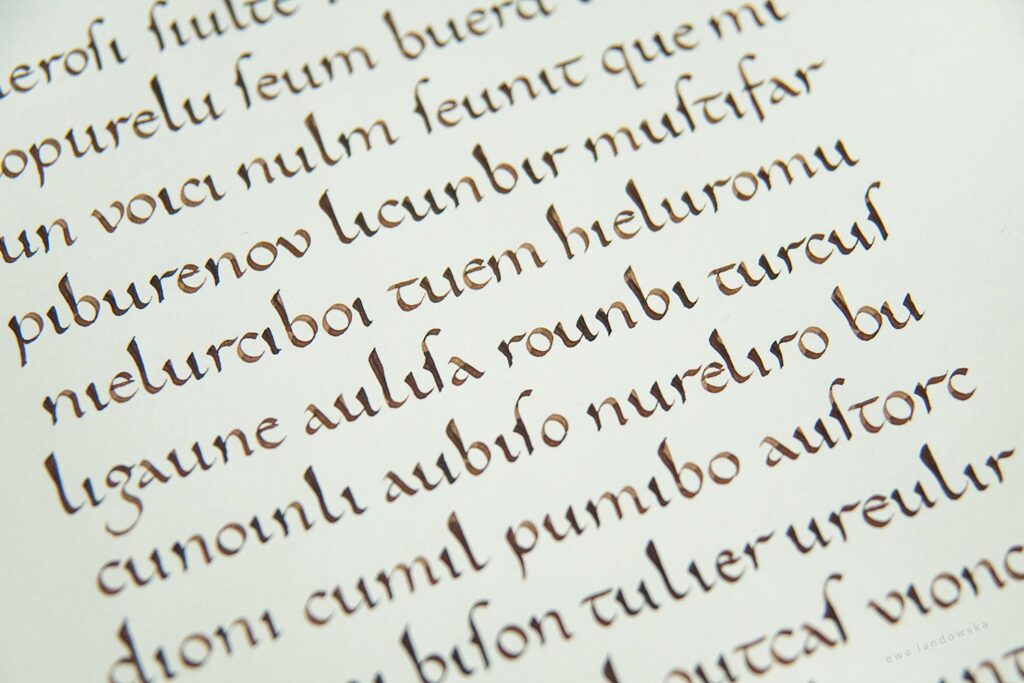 ſiulte
opurelu ſeum buera
un voici nulm ſeunit que mi
piburenov licunbir muſtifar
nielurciboi tuem hieluromu
ligaune auliſa rounbi turcuſ
cunoinli aubiſo nureliro bu
dioni cumil pumibo auſtorc
biſon tulier ureulir
outcaſ vionc
ewa landowska